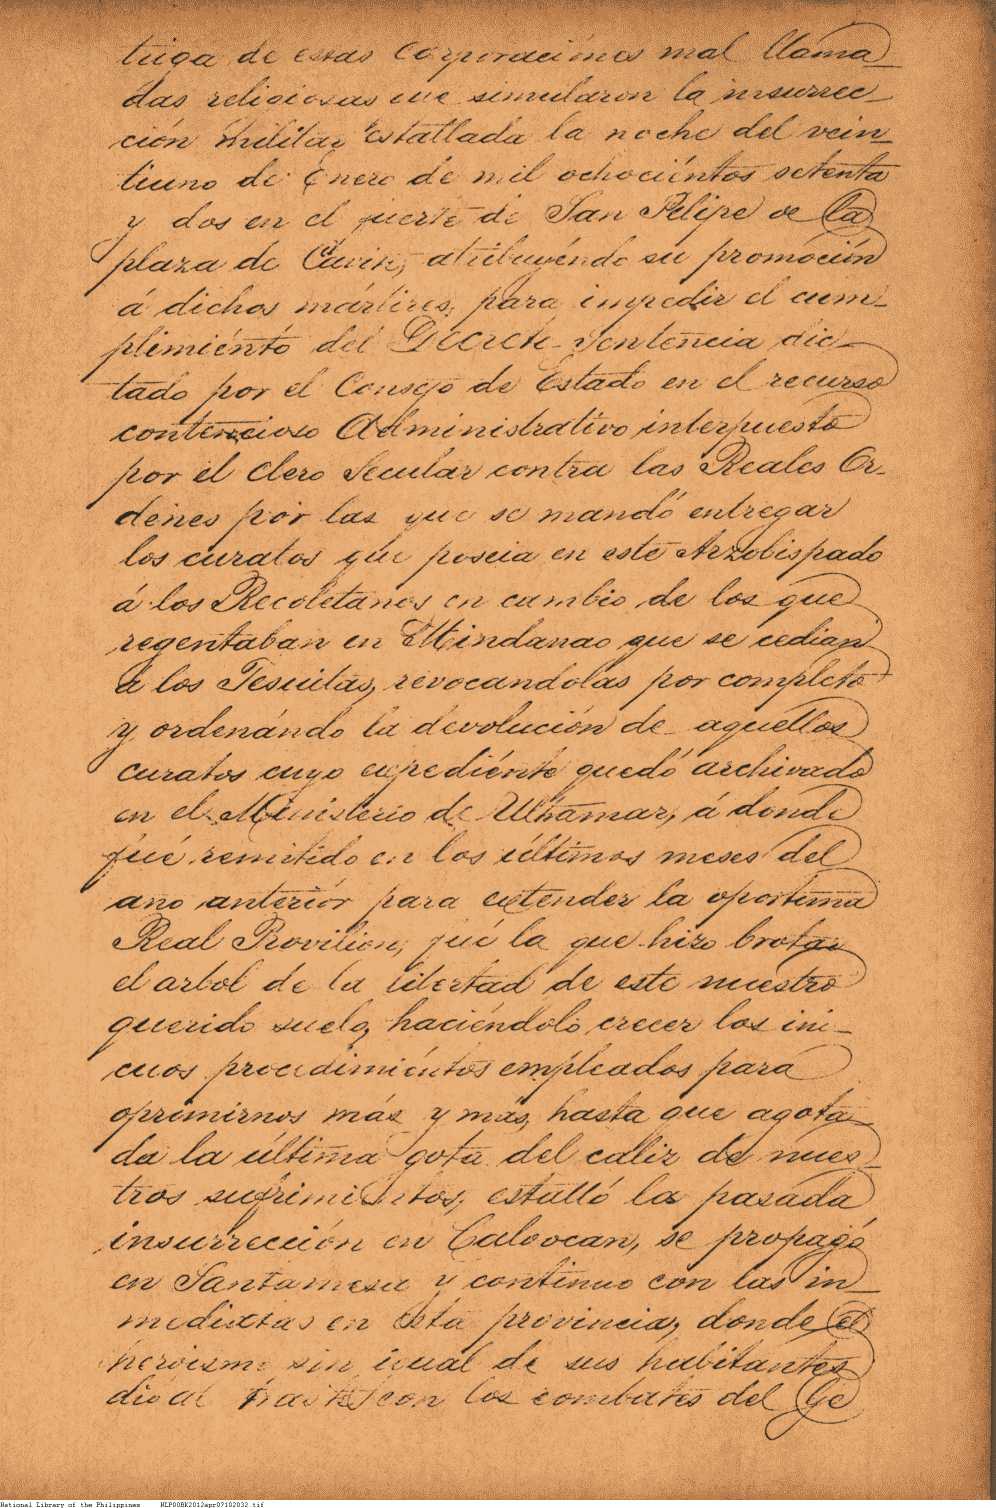 triga de estas Corporaciónes mal llama_
das religiosas que simularon la insurrec_
ción militar Estallada la noche del vein_
tiuno de Enero de mil ochociéntos setenta
y dos en el fuerte de San Felipe de la
plaza de Cavite, atribuyéndo su promoción
á dichos mártires, para impedir el cum_
plimiénto del Decreto-Sentencia dic_
tado por el Consejo de Estado en el recurso
contencioso Administrativo interpuesto
por el Clero Secular contra las Reales Or_
denes por las que se mandó entregar
los curatos que poseia en este Arzobispado
á los Recoletanos en cambio de los que
regentaban en Mindanao que se cedian
á los Jesuitas, revocandolas por completo
y ordenándo la devolución de aquellos
curatos cuyo expediénte quedó archivado
en el Ministerio de Ultramar, á donde
fué remitido en los últimos meses del
año anteriór para extender la oportuna
Real Provilion, fué la que hizo brotar
el arbol de la libertad de este nuestro
querido suelo, haciéndolo crecer los ini_
cuos procedimiéntos empleados para
oprimirnos más y más, hasta que agota_
da la última gota del caliz de nues_
tros sufrimiéntos, estalló la pasada
insurrección en Caloocan, se propagó
en Santamesa y continuo con las in_
mediatas en esta provincia, donde el
heroismo sin igual de sus habitantes
dió al traste con los combates del Ge
National Library of the Philippines NLP00BK2012apr07102032.tif